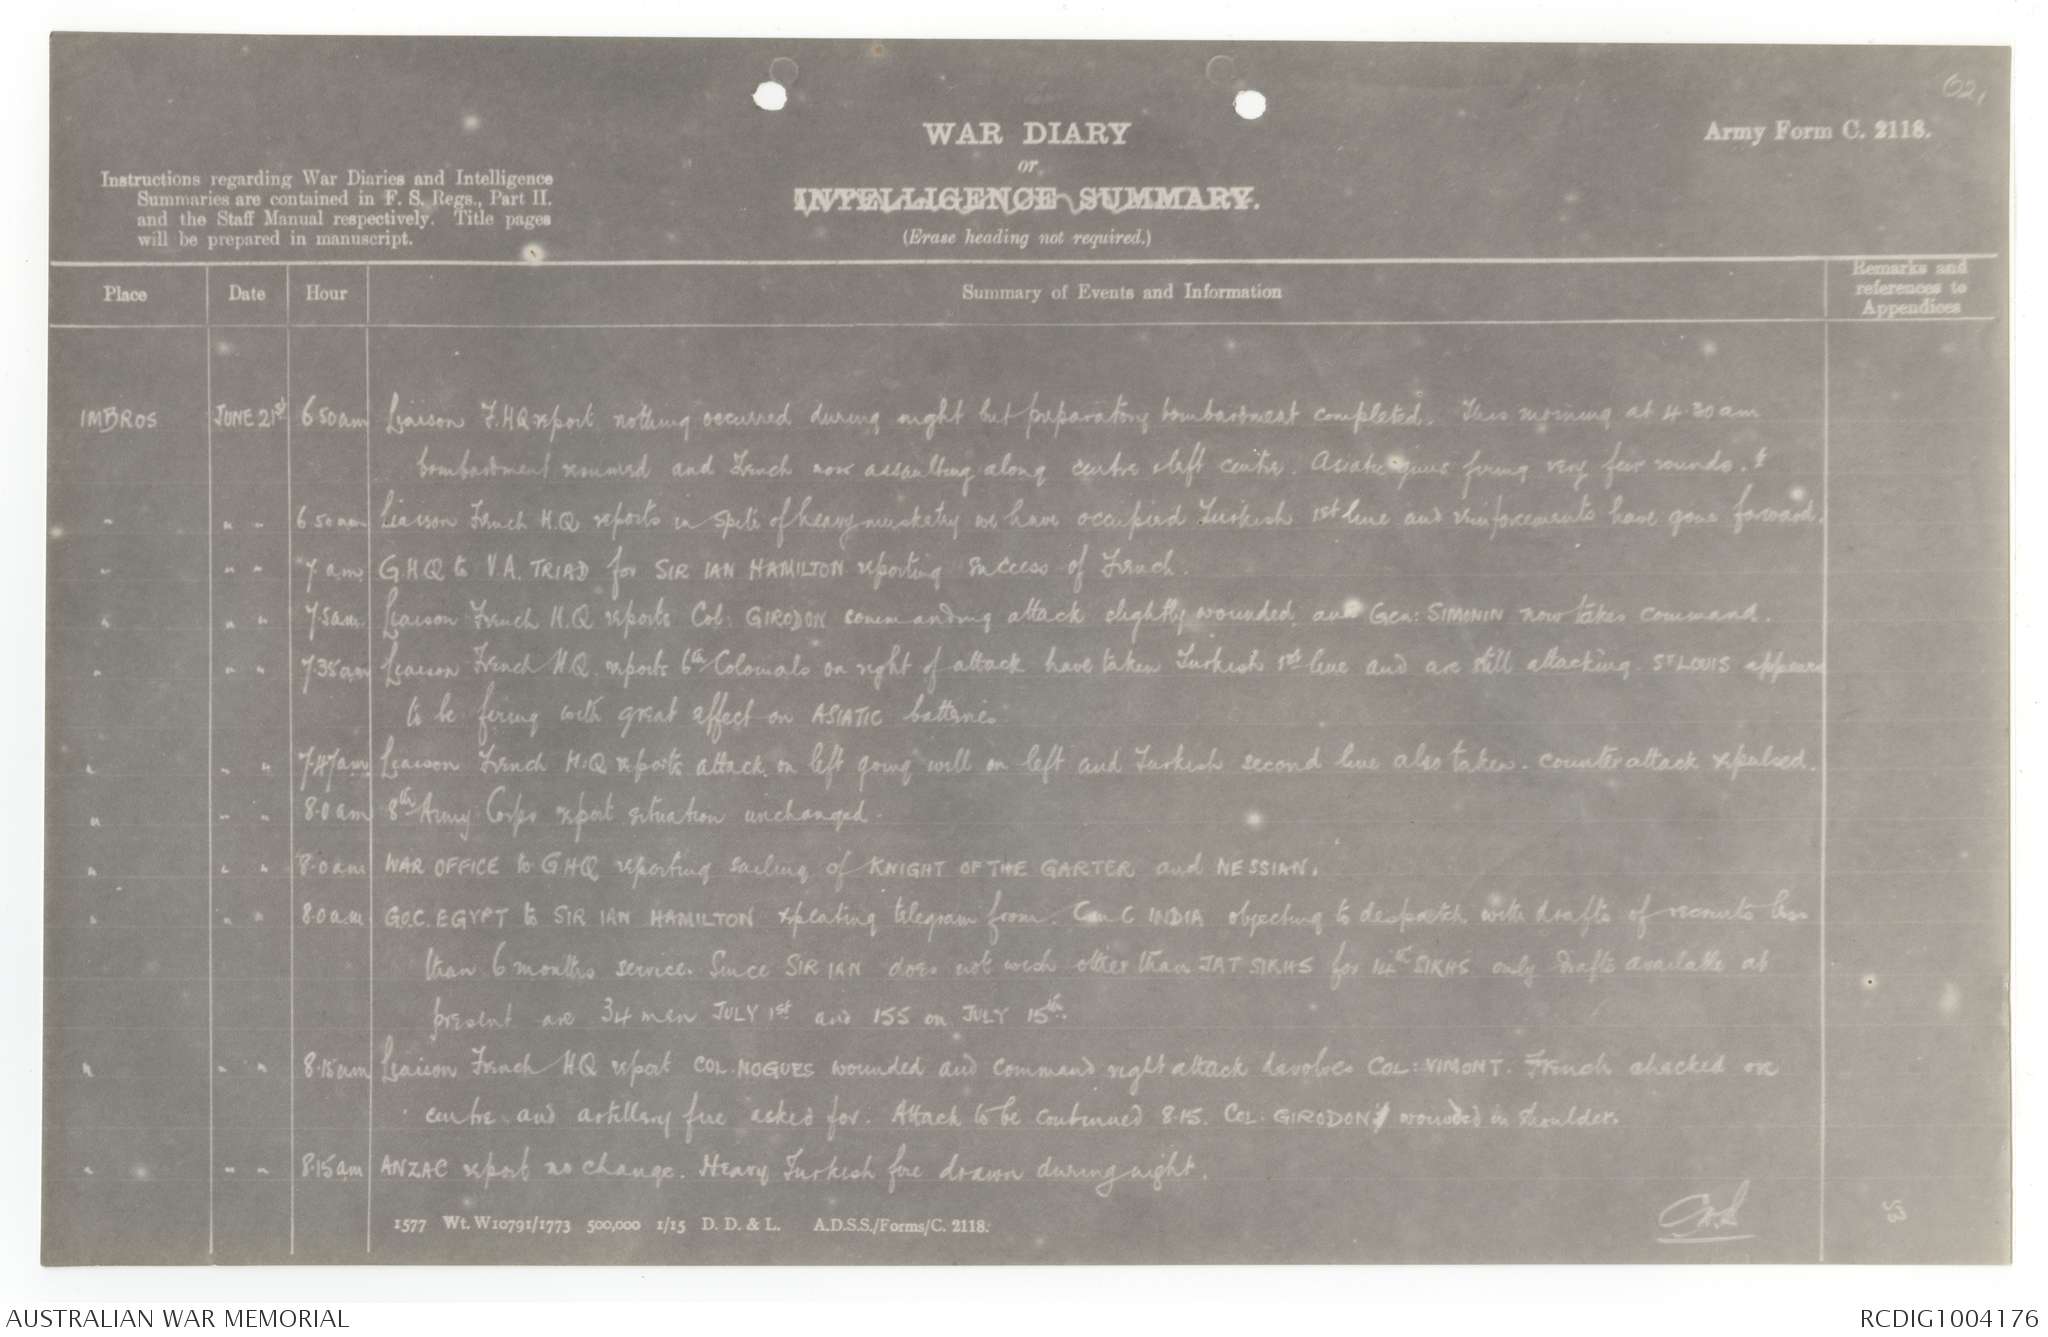 62,
WAR DIARY
or
INTELLIGENCE SUMMARY.
(Erase heading not required.)
Army Form C. 2118.
Instructions regarding War Diaries and Intelligence
Summaries are contained in F. S. Regs., Part II.
and the Staff Manual respectively. Title pages
will be prepared in manuscript.
Place Date Hour Summary of Events and Information Remarks and references to Appendices
IMBROS JUNE 21st 6 50 am Liaison F.HQ report nothing occurred during night but preparatory bombardment completed. This morning at 4.30 am
bombardment resumed and French now assaulting along centre & left centre. Asiatic guns firing very few rounds.
" " " 6 50 am Liaison French H.Q reports in spite of heavy musketry we have occupied Turkish 1st line and reinforcements have gone forward.
" " " 7 am G.H.Q to V.A. TRIAD for SIR IAN HAMILTON reporting success of French.
" " " 7.5am Liaison French H.Q reports Col: GIRODON commanding attack slightly wounded, and Gen: SIMONIN now takes command.
" " " 7.35am Liaison French H.Q. reports 6th Colonials on right of attack have taken Turkish 1st line and are still attacking. ST LOUIS appears
to be firing with great effect on ASIATIC batteries
" " " 7.47am Liaison French H.Q reports attack on left going well on left and Turkish second line also taken. Counter attack repulsed.
" " " 8.0 am 8th Army Corps report situation unchanged.
" " " 8.0 am WAR OFFICE to GHQ reporting sailing of KNIGHT OF THE GARTER and NESSIAN.
" " " 8.0 am G.O.C. EGYPT to SIR IAN HAMILTON repeating telegram from C in C INDIA objecting to despatch with drafts of recruits less
than 6 months service. Since SIR IAN does not wish other than JAT SIKHS for 14th SIKHS only drafts available at
present are 34 men JULY 1st and 155 on JULY 15th.
" " " 8.15am Liaison French HQ report COL. NOGUES wounded and command right attack devolves COL: VIMONT. French checked on
centre and artillery fire asked for. Attack to be continued 8.15. COL. GIRODON wounded in shoulder.
" " " 8.15am ANZAC report no change. Heavy Turkish fire drawn during night.
53
1577 Wt. W10791/1773 500,000 1/15 D. D. & L. A.D.S.S./Forms/C. 2118.
AUSTRALIAN WAR MEMORIAL
RCDIG1004176